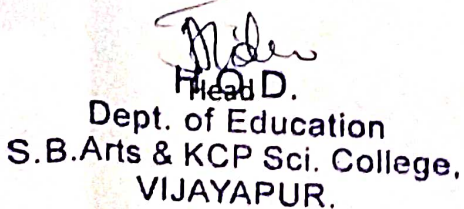 H.O.D.
Head
Dept. of Education
S.B.Arts & KCP Sci. College,
VIJAYAPUR.